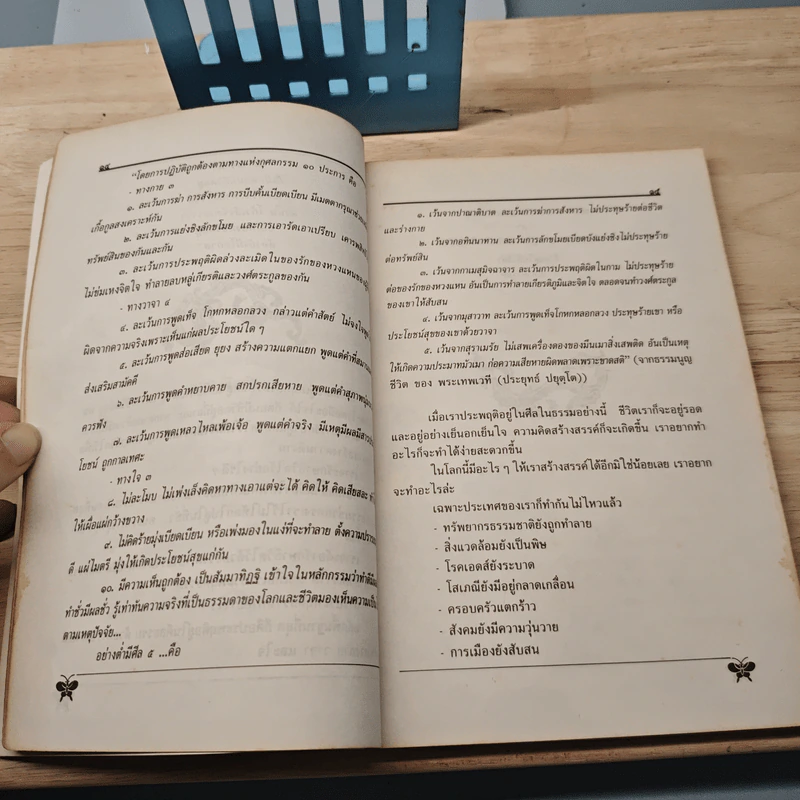 ๑๔
"โดยการปฏิบัติถูกต้องตามทางแห่งกุศลกรรม ๑๐ ประการ คือ
- ทางกาย ๓
๑. ละเว้นการฆ่า การสังหาร การบีบคั้นเบียดเบียน มีเมตตากรุณาช่วย
เกื้อกูลสงเคราะห์กัน
๒. ละเว้นการแย่งชิงลักขโมย และการเอารัดเอาเปรียบ เคารพ
ทรัพย์สินของกันและกัน
๓. ละเว้นการประพฤติผิดล่วงละเมิดในของรักของหวงแหนของ
ไม่ข่มเหงจิตใจ ทำลายลบหลู่เกียรติและวงศ์ตระกูลของกัน
- ทางวาจา ๔
๔. ละเว้นการพูดเท็จ โกหกหลอกลวง กล่าวแต่คำสัตย์ ไม่จงใจ
ผิดจากความจริงเพราะเห็นแก่ผลประโยชน์ใด ๆ
๕. ละเว้นการพูดส่อเสียด ยุยง สร้างความแตกแยก พูดแต่คำที่
ส่งเสริมสามัคคี
๖. ละเว้นการพูดคำหยาบคาย สกปรกเสียหาย พูดแต่คำสุภาพ
ควรฟัง
๗. ละเว้นการพูดเหลวไหลเพ้อเจ้อ พูดแต่คำจริง มีเหตุมีผลมี
โยชน์ ถูกกาลเทศะ
- ทางใจ ๓
๘. ไม่ละโมบ ไม่เพ่งเล็งคิดหาทางเอาแต่จะได้ คิดให้ คิดเสียสละ
ให้เผื่อแผ่กว้างขวาง
๙. ไม่คิดร้ายมุ่งเบียดเบียน หรือเพ่งมองในแง่ที่จะทำลาย ตั้งความ
ดี แผ่ไมตรี มุ่งให้เกิดประโยชน์สุขแก่กัน
๑๐. มีความเห็นถูกต้อง เป็นสัมมาทิฏฐิ เข้าใจในหลักกรรมว่าทำดี
ทำชั่วมีผลชั่ว รู้เท่าทันความจริงที่เป็นธรรมดาของโลกและชีวิตมองเห็นความ
ตามเหตุปัจจัย...
อย่างต่ำมีศีล ๕ ...คือ
๑๕
๑. เว้นจากปาณาติบาต ละเว้นการฆ่าการสังหาร ไม่ประทุษร้ายต่อชีวิต
และร่างกาย
๒. เว้นจากอทินนาทาน ละเว้นการลักขโมยเบียดบังแย่งชิงไม่ประทุษร้าย
ต่อทรัพย์สิน
๓. เว้นจากกาเมสุมิจฉาจาร ละเว้นการประพฤติผิดในกาม ไม่ประทุษร้าย
ต่อของรักของหวงแหน อันเป็นการทำลายเกียรติภูมิและจิตใจ ตลอดจนทำวงศ์ตระกูล
ของเขาให้สับสน
๔. เว้นจากมุสาวาท ละเว้นการพูดเท็จโกหกหลอกลวง ประทุษร้ายเขา หรือ
ประโยชน์สุขของเขาด้วยวาจา
๕. เว้นจากสุราเมรัย ไม่เสพเครื่องดองของมึนเมาสิ่งเสพติด อันเป็นเหตุ
ให้เกิดความประมาทมัวเมา ก่อความเสียหายผิดพลาดเพราะขาดสติ" (จากธรรมนูญ
ชีวิต ของ พระเทพเวที (ประยุทธ์ ปยุตฺโต))
เมื่อเราประพฤติอยู่ในศีลในธรรมอย่างนี้ ชีวิตเราก็จะอยู่รอด
และอยู่อย่างเย็นอกเย็นใจ ความคิดสร้างสรรค์ก็จะเกิดขึ้น เราอยากทำ
อะไรก็จะทำได้ง่ายสะดวกขึ้น
ในโลกนี้มีอะไร ๆ ให้เราสร้างสรรค์ได้อีกมิใช่น้อยเลย เราอยาก
จะทำอะไรล่ะ
เฉพาะประเทศของเราก็ทำกันไม่ไหวแล้ว
- ทรัพยากรธรรมชาติยังถูกทำลาย
- สิ่งแวดล้อมยังเป็นพิษ
- โรคเอดส์ยังระบาด
- โสเภณียังมีอยู่กลาดเกลื่อน
- ครอบครัวแตกร้าว
- สังคมยังมีความวุ่นวาย
- การเมืองยังสับสน